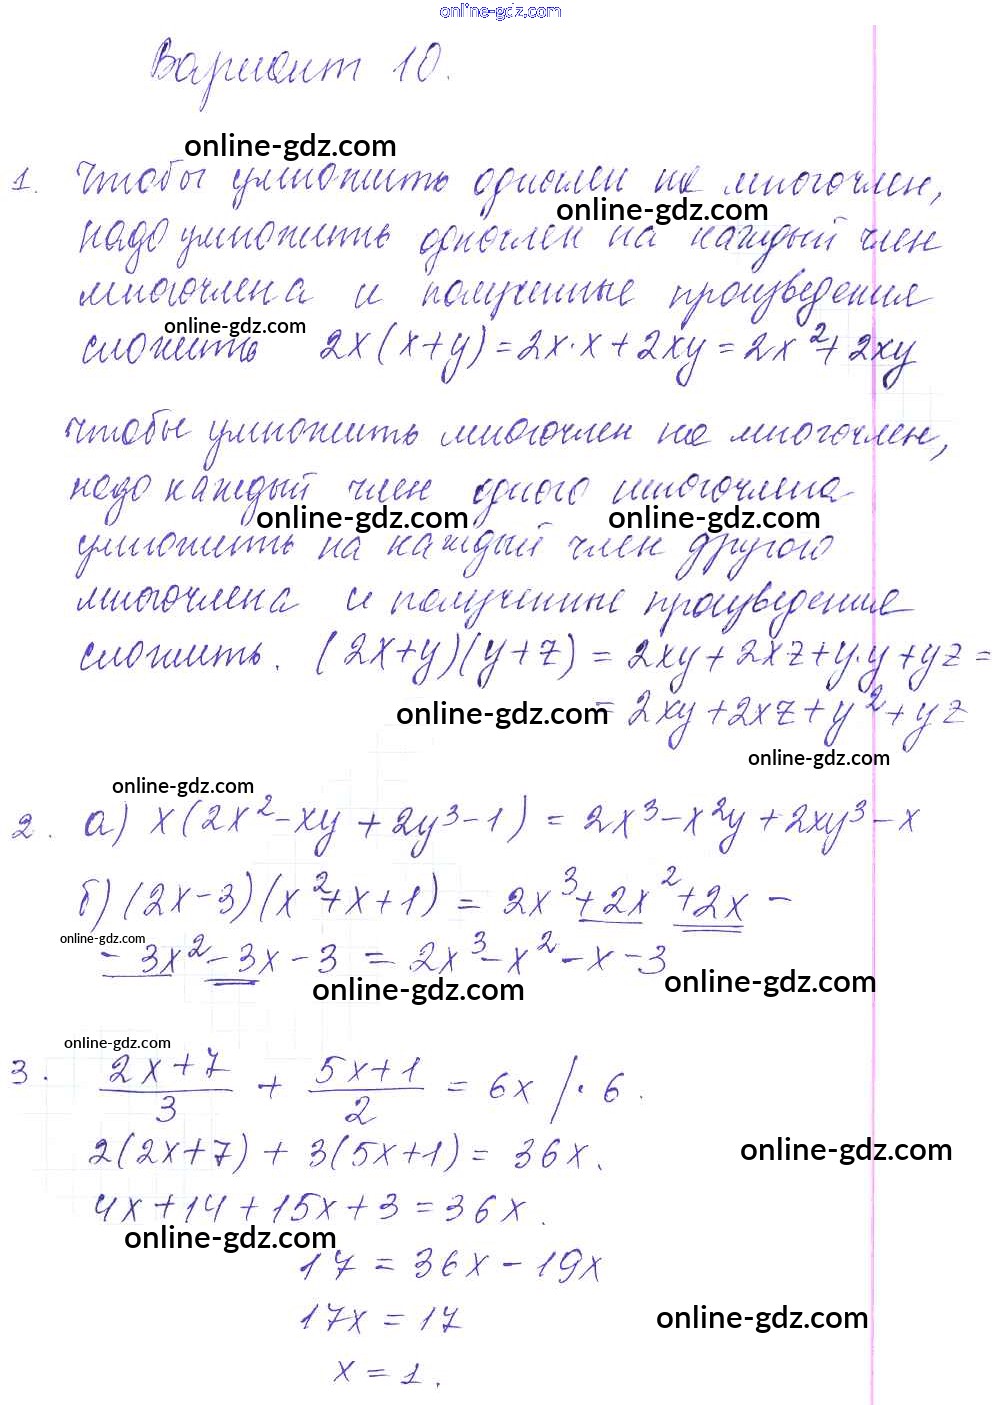 online-gdz.com
Вариант 10.
online-gdz.com
1. Чтобы умножить одночлен на многочлен,
online-gdz.com
надо умножить одночлен на каждый член
многочлена и полученные произведения
online-gdz.com
сложить 2x(x+y)=2x·x+2xy=2x²+2xy
чтобы умножить многочлен на многочлен,
надо каждый член одного многочлена
online-gdz.com online-gdz.com
умножить на каждый член другого
многочлена и полученные произведения
сложить. (2x+y)(y+z)=2xy+2xz+y·y+yz=
online-gdz.com
=2xy+2xz+y²+yz
online-gdz.com
online-gdz.com
2. а) x(2x²-xy+2y³-1)=2x³-x²y+2xy³-x
б) (2x-3)(x²+x+1)=2x³+2x²+2x-
online-gdz.com
-3x²-3x-3=2x³-x²-x-3
online-gdz.com online-gdz.com
online-gdz.com
3. (2x+7)/3 + (5x+1)/2 = 6x /·6.
2(2x+7)+3(5x+1)=36x.
online-gdz.com
4x+14+15x+3=36x.
online-gdz.com
17=36x-19x
17x=17
online-gdz.com
x=1.